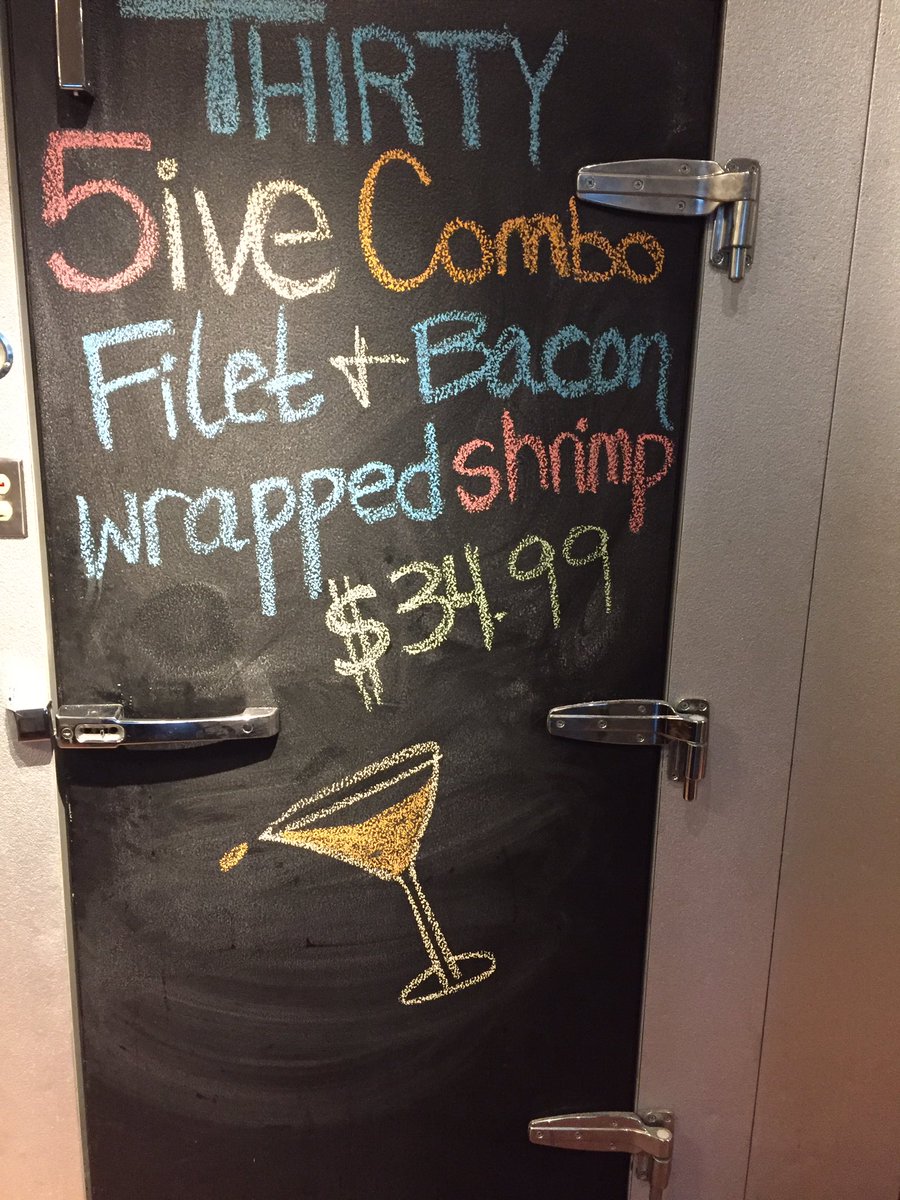 THIRTY
5ive Combo
Filet + Bacon
wrapped shrimp
$34.99